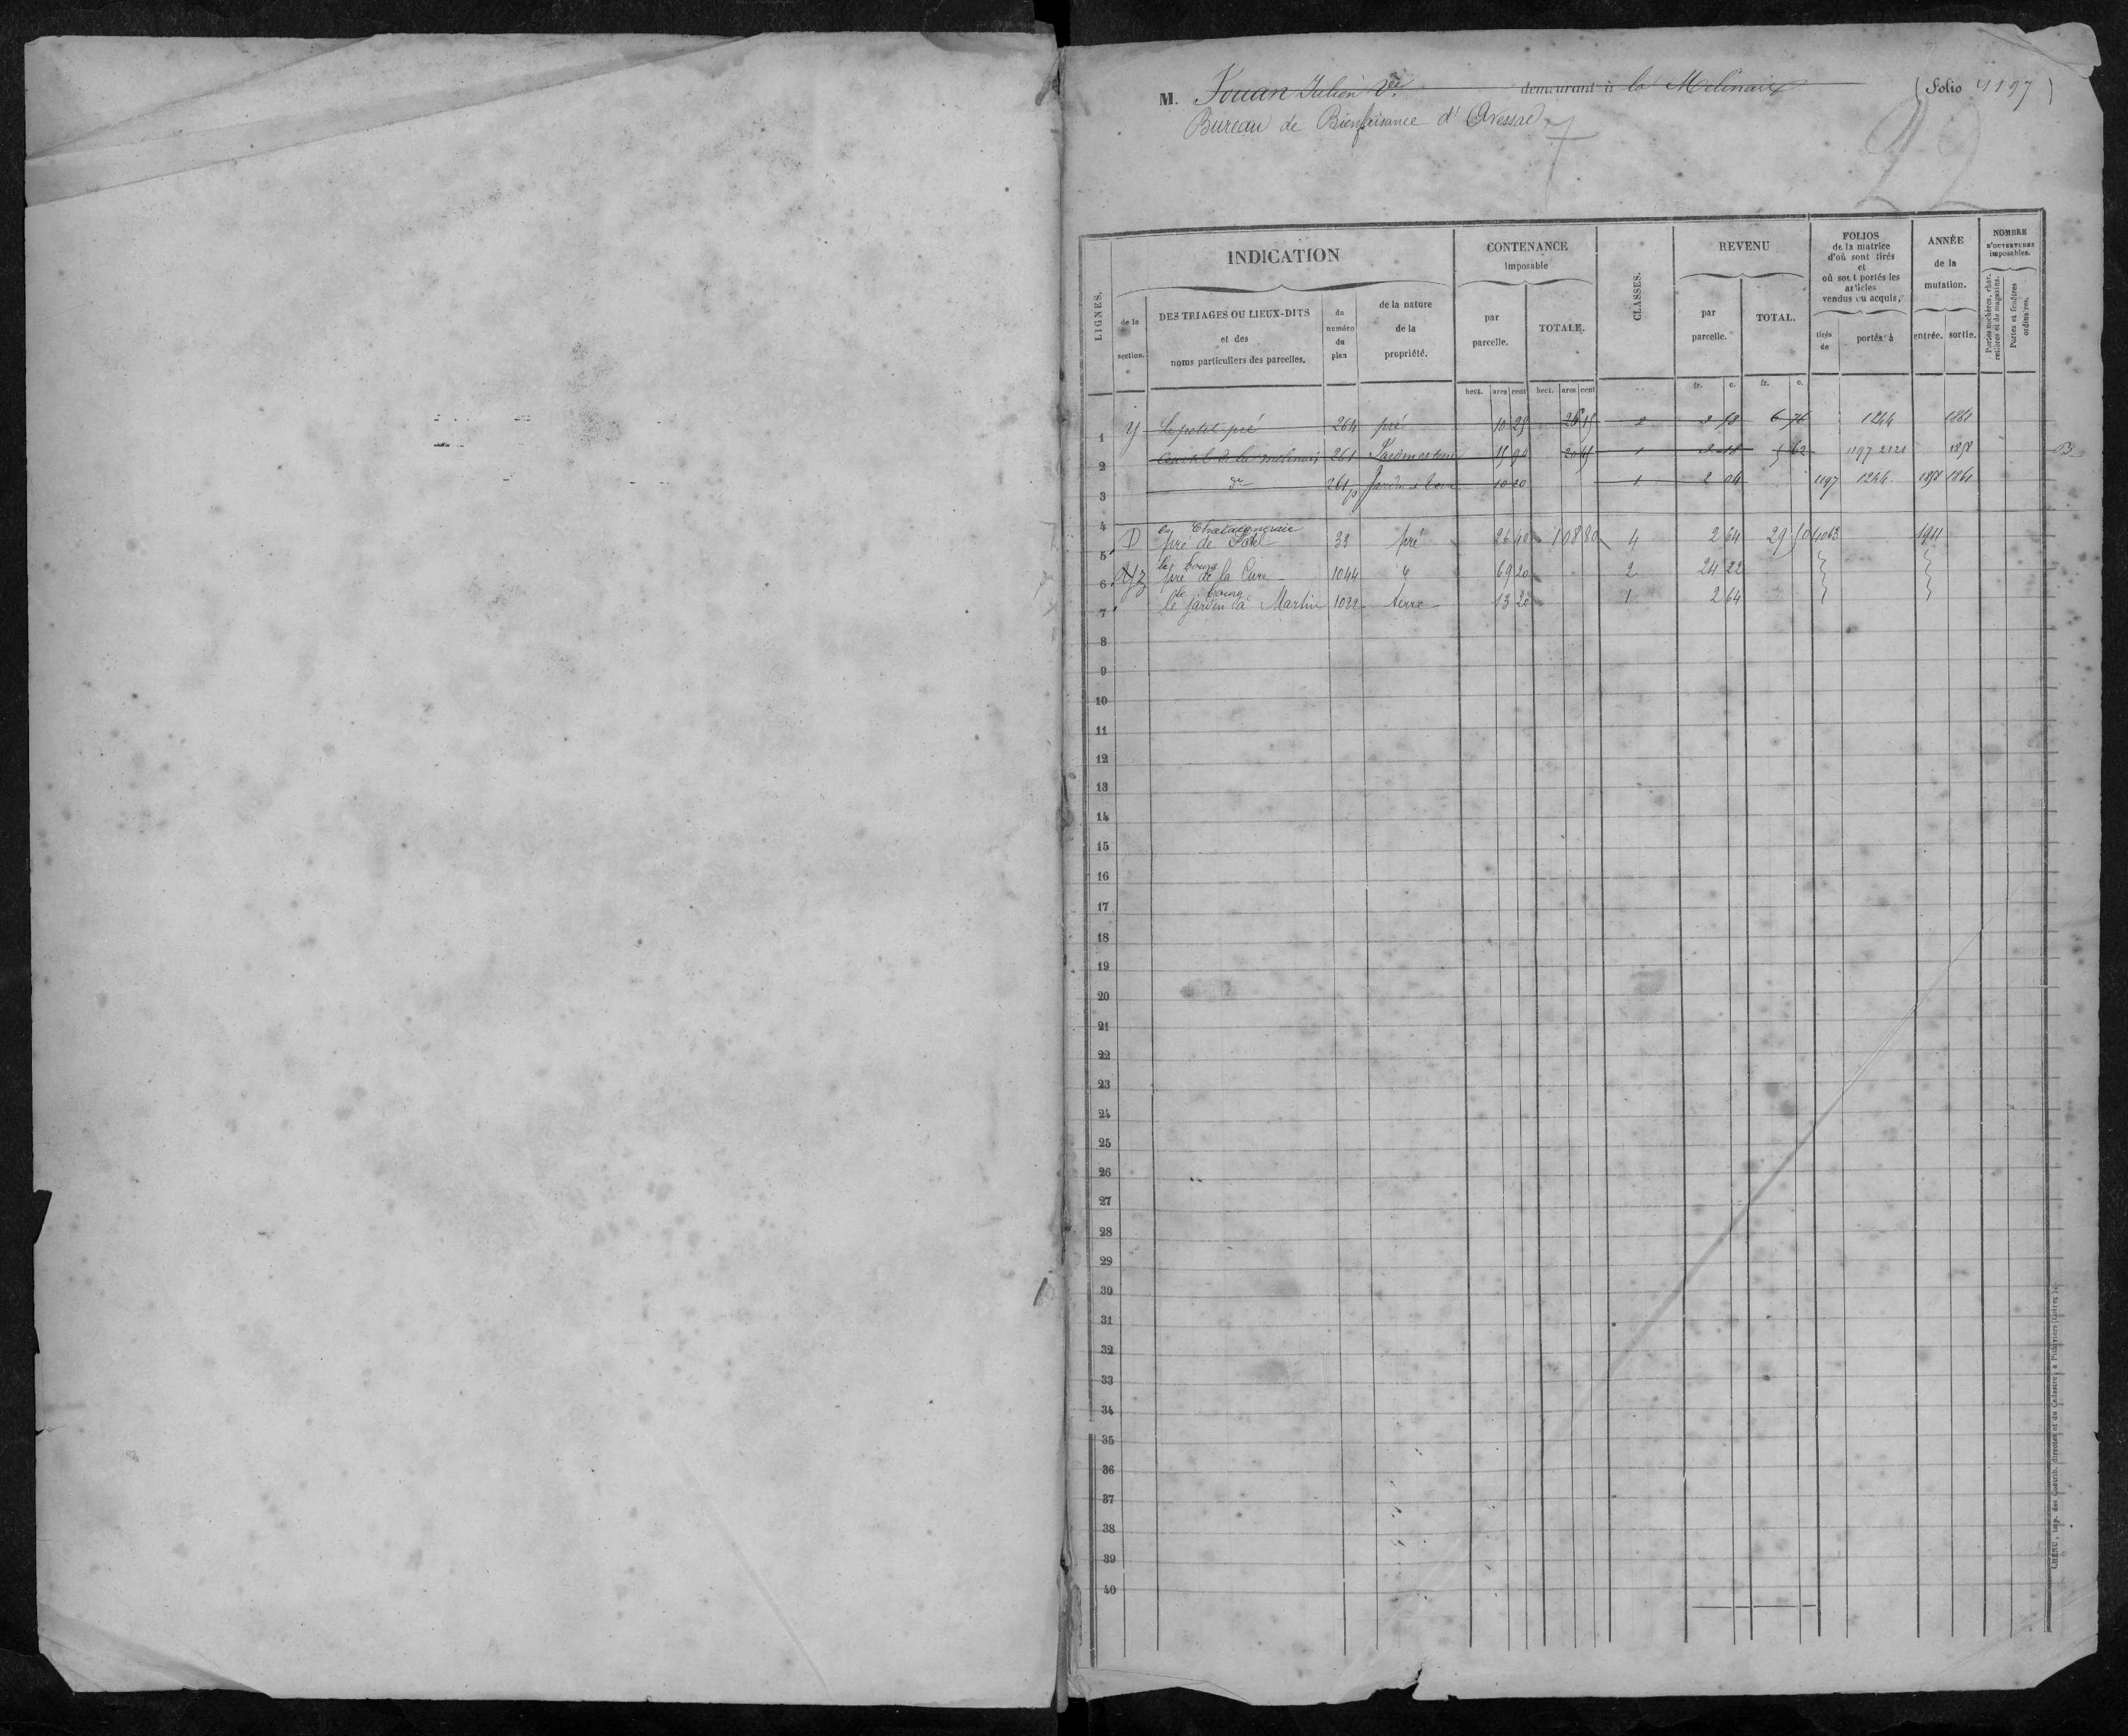 M. Jouan Julien Ve demeurant à la Molinais (Folio 1197)
Bureau de Bienfaisance d'Avessac
22
LIGNES.
INDICATION
de la section.
DES TRIAGES OU LIEUX-DITS et des noms particuliers des parcelles.
du numéro du plan
de la nature de la propriété.
CONTENANCE imposable
par parcelle.
TOTALE.
hect. ares cent hect. ares cent
CLASSES.
REVENU
par parcelle.
TOTAL.
fr. c. fr. c.
FOLIOS de la matrice d'où sont tirés et où sont portés les articles vendus ou acquis,
tirés de
portés à
ANNÉE de la mutation.
entrée. sortie.
NOMBRE D'OUVERTURES imposables.
Portes cochères, char. retières et de magasins.
Portes et fenêtres ordinaires.
1 Y le petit pré 264 pré 10 25 26 15 2 3 58 6 76 1244 1861
2 de la molinais 261 15 90 20 45 1 3 18 5 62 1197 2121 1858
3 do 261p 10 20 1 2 04 1197 1244 1858 1861
4 la Chataigneraie
5 D pré de 33 pré 26 40 1 08 80 4 2 64 29 50 4063 1911
le bourg
6 pré de la Cure 1044 " 69 20 2 24 22
le bourg
7 le jardin à Martin 1022 terre 13 20 1 2 64
8
9
10
11
12
13
14
15
16
17
18
19
20
21
22
23
24
25
26
27
28
29
30
31
32
33
34
35
36
37
38
39
40
imp. des Contrib. directes et du Cadastre, à Pithiviers (Loiret).